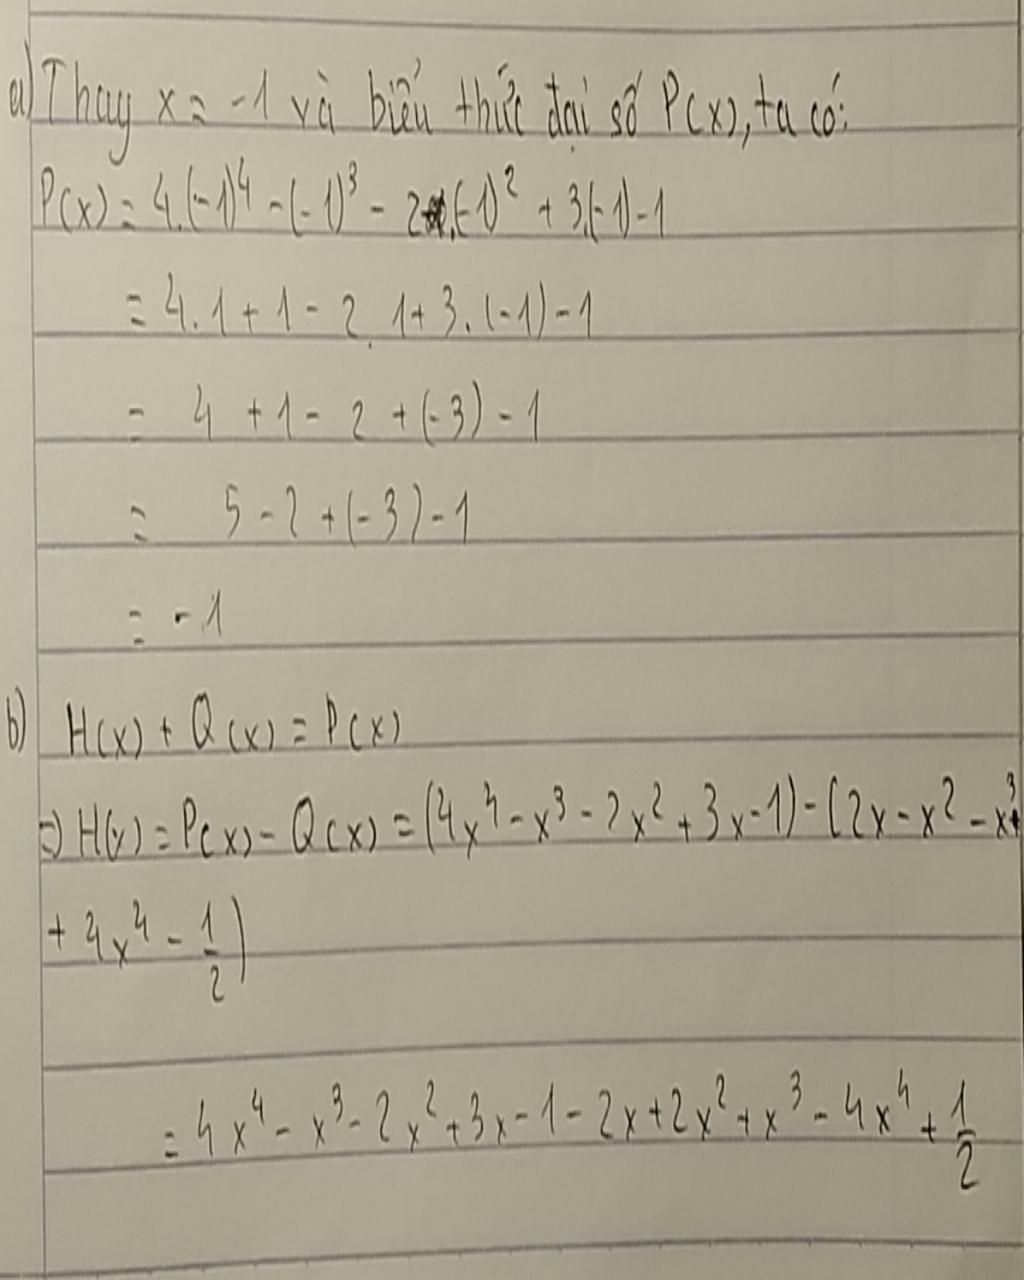 a) Thay x = -1 và biểu thức đại số P(x), ta có:
P(x) = 4.(-1)⁴ - (-1)³ - 2.(-1)² + 3.(-1) - 1
= 4.1 + 1 - 2.1 + 3.(-1) - 1
= 4 + 1 - 2 + (-3) - 1
= 5 - 2 + (-3) - 1
= -1
b) H(x) + Q(x) = P(x)
=) H(x) = P(x) - Q(x) = (4x⁴ - x³ - 2x² + 3x - 1) - (2x - x² - x³
+ 4x⁴ - 1/2)
= 4x⁴ - x³ - 2x² + 3x - 1 - 2x + 2x² + x³ - 4x⁴ + 1/2